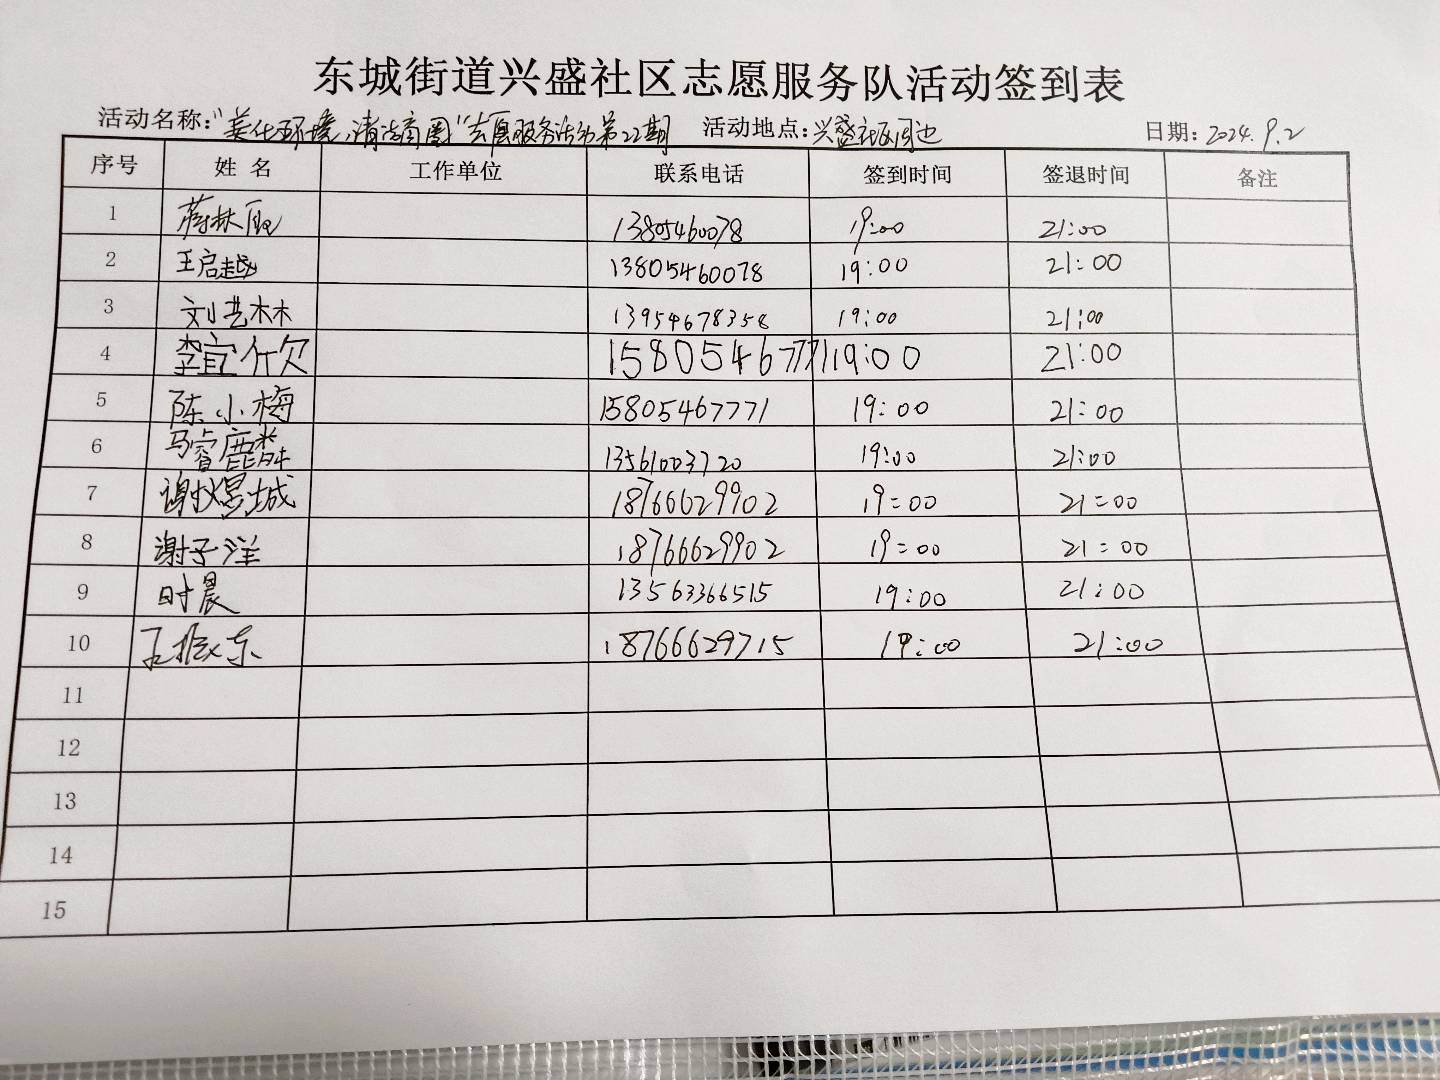 东城街道兴盛社区志愿服务队活动签到表
活动名称：“美化环境，清洁商圈”志愿服务活动第22期 活动地点：兴盛社区周边 日期：2024.9.2
序号 姓名 工作单位 联系电话 签到时间 签退时间 备注
1 13805460078 19:00 21:00
2 王启越 13805460078 19:00 21:00
3 刘艺林 13954678358 19:00 21:00
4 李宜欣 15805467771 19:00 21:00
5 陈小梅 15805467771 19:00 21:00
6 马睿 13561003720 19:00 21:00
7 谢煜城 18766629902 19:00 21:00
8 谢子洋 18766629902 19:00 21:00
9 时晨 13563366515 19:00 21:00
10 18766629715 19:00 21:00
11
12
13
14
15